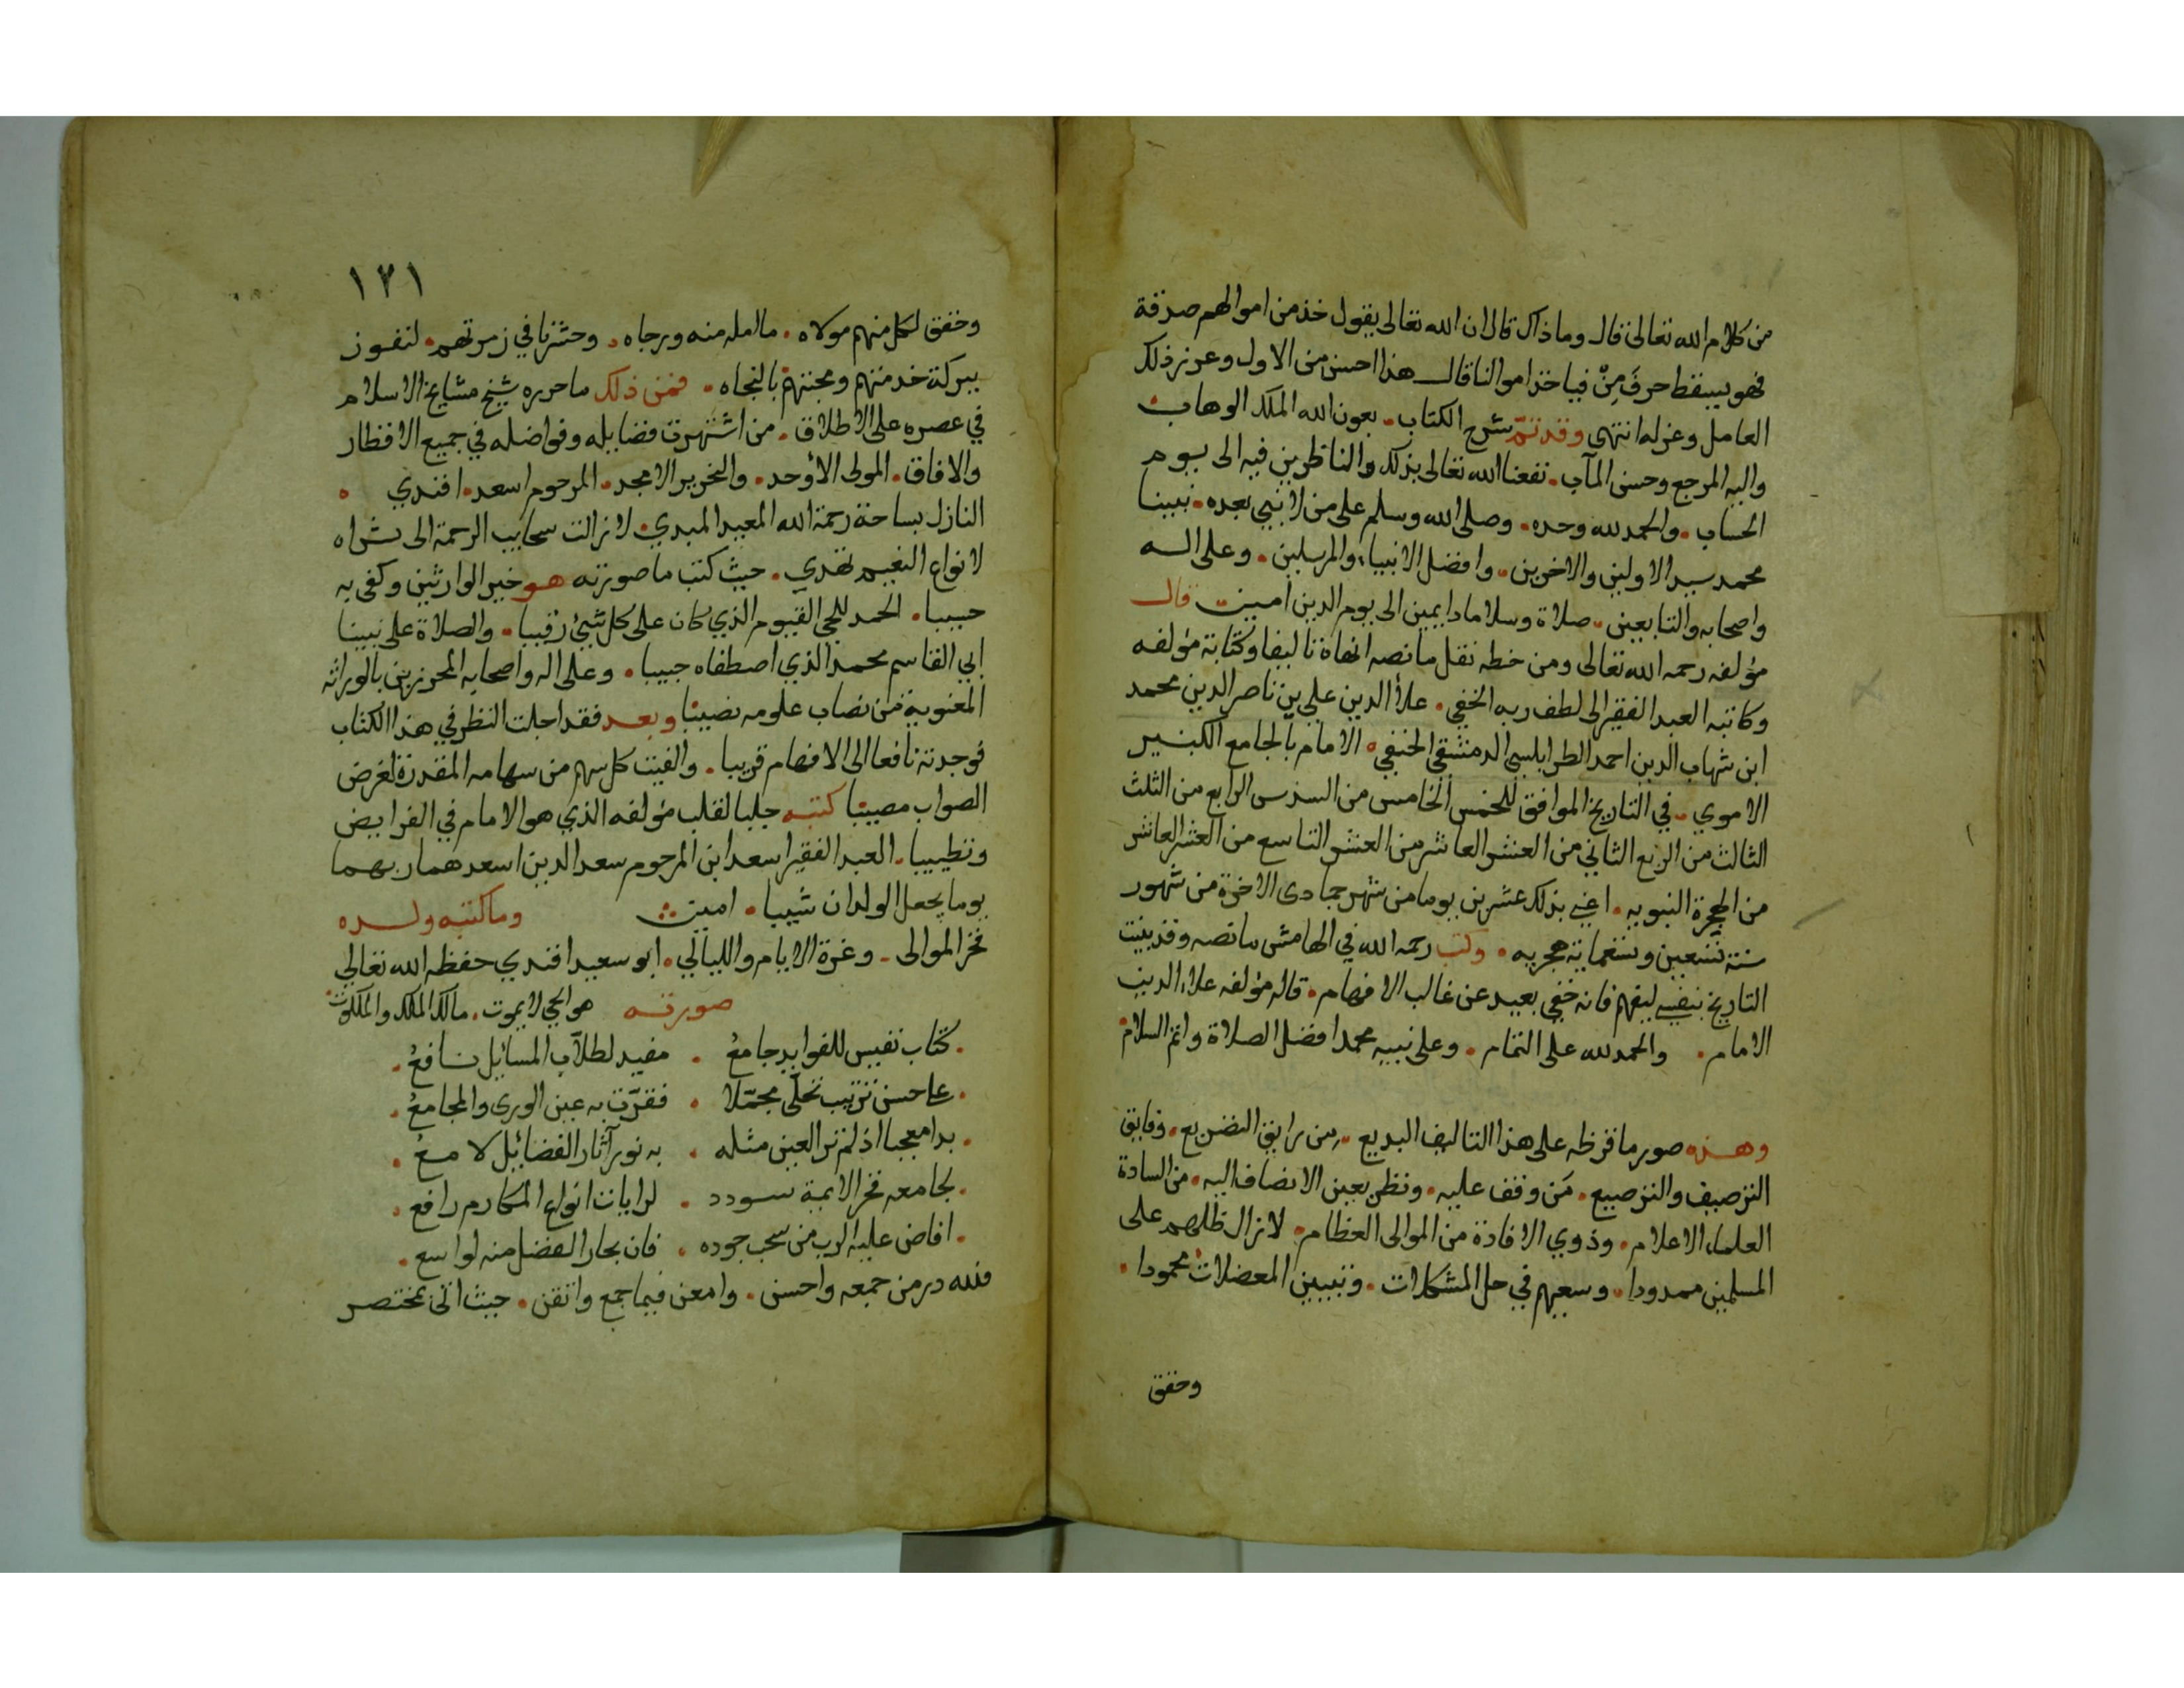 من كلام الله تعالى قال وما ذاك قال ان الله تعالى يقول خذ من اموالهم صدقة
فهو يسقط حرفَ مِنْ فياخذ اموالنا قال هذا احسن من الاول وعزز ذلك
العامل وعزله انتهى وقد تمّ شرح الكتاب. بعون الله الملك الوهاب
واليه المرجع وحسن المآب. نفعنا الله تعالى بذلك والناظرين فيه الى يوم
الحساب. والحمد لله وحده. وصلى الله وسلم على من لا نبي بعده. نبينا
محمد سيد الاولين والاخرين. وافضل الانبياء والمرسلين. وعلى اله
واصحابه والتابعين. صلاة وسلاما دايمين الى يوم الدين امين قال
مؤلفه رحمه الله تعالى ومن خطه نقل ما نصه انهاه تاليفا وكتابة مؤلفه
وكاتبه العبد الفقير الى لطف ربه الخفي. علاء الدين علي بن ناصر الدين محمد
ابن شهاب الدين احمد الطرابلسي الدمشقي الحنفي. الامام بالجامع الكبير
الاموي. في التاريخ الموافق للخمس الخامس من السدس الرابع من الثلث
الثالث من الربع الثاني من العشر العاشر من العشر التاسع من العشر العاشر
من الهجرة النبويه. اعني بذلك عشرين يوما من شهر جمادى الاخرة من شهور
سنة تسعين وتسعماية هجريه. وكتب رحمه الله في الهامش ما نصه وقد بينت
التاريخ بنفسي ليفهم فانه خفي بعيد عن غالب الافهام. قاله مؤلفه علاء الدين
الامام. والحمد لله على التمام. وعلى نبيه محمد افضل الصلاة واتم السلام
وهذه صور ما قرظه على هذا التاليف البديع. من رايق التضريع. وفايق
الترصيف والترصيع. مَن وقف عليه. ونظر بعين الانصاف اليه. من السادة
العلماء الاعلام. وذوي الافادة من الموالى العظام. لا زال ظلهم على
المسلمين ممدودا. وسعيهم في حل المشكلات. وتبيين المعضلات محمودا.
وحقق
١٢١
وحقق لكل منهم مولاه. ما امله منه ورجاه. وحشرنا في زمرتهم. لنفوز
ببركة خدمتهم ومحبتهم بالنجاه. فمن ذلك ما حرره شيخ مشايخ الاسلام
في عصره على الاطلاق. من اشتهرت فضايله وفواضله في جميع الاقطار
والافاق. المولى الأوحد. والنحرير الامجد. المرحوم اسعد افندي
النازل بساحة رحمة الله المعيد المبدي. لا زالت سحايب الرحمة الى ثراه
لانواع النعيم تهدي. حيث كتب ما صورته هو خير الوارثين وكفى به
حسيبا. الحمد للحي القيوم الذي كان على كل شيئ رقيبا. والصلاة على نبينا
ابي القاسم محمد الذي اصطفاه حبيبا. وعلى اله واصحابه المحرزين بالوراثه
المعنوية من نصاب علومه نصيبا وبعد فقد اجلت النظر في هذا الكتاب
فوجدته نافعا الى الافهام قريبا. والفيت كل سهم من سهامه المقدرة لغرض
الصواب مصيبا كتبه جلبا لقلب مؤلفه الذي هو الامام في الفرايض
وتطييبا. العبد الفقير اسعد ابن المرحوم سعد الدين اسعدهما ربهما
يوما يجعل الولدان شيبا. امين وما كتبه ولده
فخر الموالى. وغرة الايام والليالي. ابو سعيد افندي حفظه الله تعالى
صورته هو الحي لا يموت. مالك الملك والملكوت
كتاب نفيس للفوايد جامعُ . مفيد لطلاب المسائيل نافعُ
على حسن ترتيب تحلّى مجمّلا . فقرّت به عين الورى والمجامعُ
بدا معجبا اذ لم تر العين مثله . به نور آثار الفضائيل لامعُ
لجامعه فخر الايمة سودد . لرايات انواع المكارم رافع
افاض عليه الرب من سحب جوده . فان بحار الفضل منه لواسع
فلله در من جمعه واحسن. وامعن فيما جمع واتقن. حيث اتى بمختصر